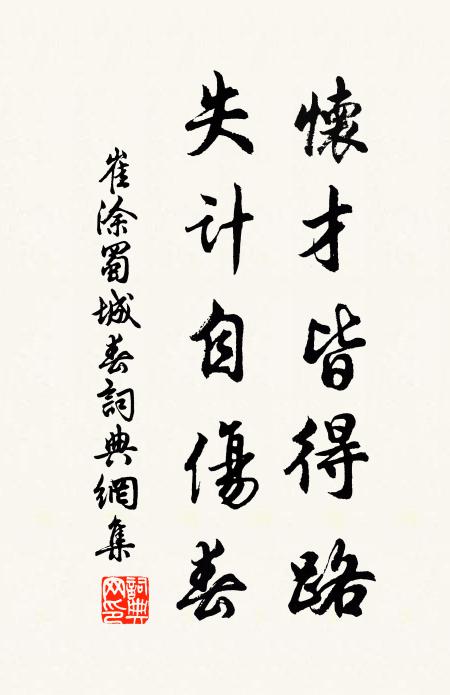 懷才皆得路
失计自傷春
崔涂蜀城春詞典網集
詞典網印